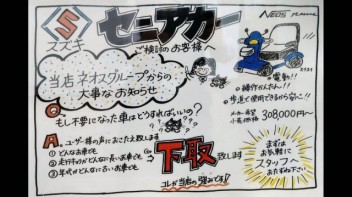 S
スズキ
セニアカー
ご検討のお客様へ
NEOS
当店ネオスグループからの
大事なお知らせ
電動!!
操作かんたん!!
歩道で使用できるから安心!!
メーカー希望
小売価格 308,000円〜
Q.
もし不要になった車はどうすればいいの?
A.
ユーザー様の声におこたえ致します
① どんなお車でも
② 走行キョリがどんなに長いお車でも
③ 年式がどんなに古いお車でも
下取致します
コレが当店の強みです!!
まずは
お気軽に
スタッフへ
おたずね下さい